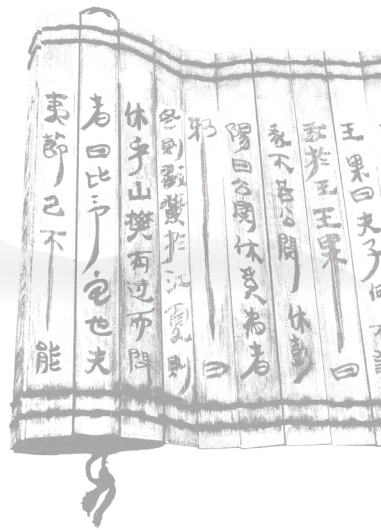 王果曰夫子何不
我於王王果曰
我不若公閱休彭
陽曰公閱休奚為者
邪曰
冬則擉鱉於江夏則
休乎山樊有过而問
者曰此予宅也夫
夷節已不能